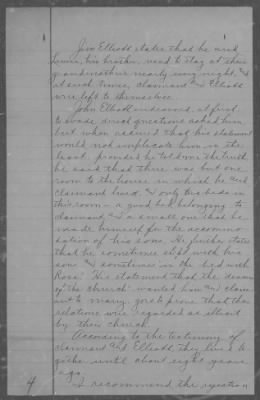 Jim Elliott states that he and
Lewis, his brother, used to stay at their
grandmother's nearly every night, &
at such times, claimant & Elliott
were left to themselves.
John Elliott endeavored, at first,
to evade direct questions asked him
but when assured that his statement
would not implicate him in the
least, provided he told us the truth,
he said that there was but one
room to the house in which he and
claimant lived & only two beds in
this room - a good bed belonging to
claimant, and a small one that he
made himself for the accommo-
dation of his sons. He further states
that he sometimes slept with his
sons & sometimes in the bed with
Rose. His statement that the deacons
of the church wanted him and claim-
ant to marry, goes to prove that their
relations were regarded as illicit
by their church.
According to the testimony of
claimant and Elliott, they lived to-
gether until about eight years
ago.
I recommend the rejection
4